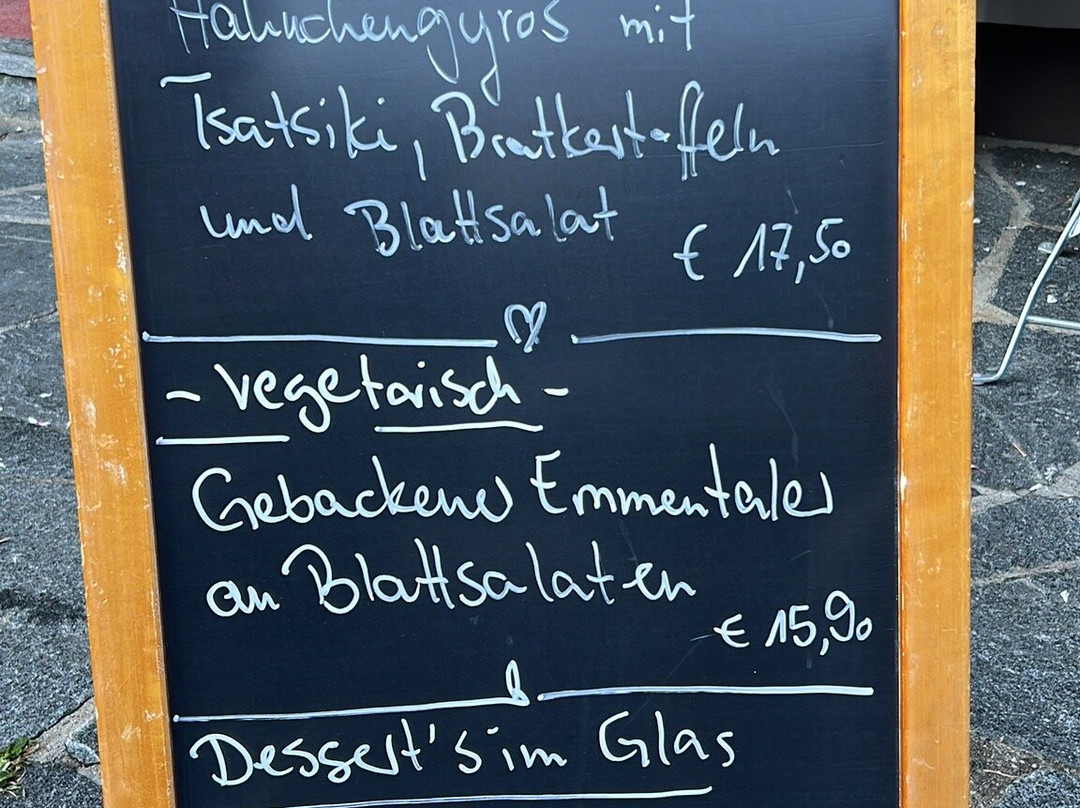 Hähnchengyros mit
Tsatsiki, Bratkartoffeln
und Blattsalat
€ 17,50
- vegetarisch -
Gebackener Emmentaler
an Blattsalaten
€ 15,90
Dessert's im Glas